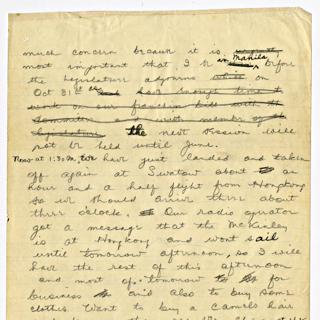 much concern because it is
most important that I be in Manila before
the legislature adjourns on
Oct 31st and have enough time to
work on our franchise bill with the
with members of the
legislature the next session will
not be held until June.
Now at 1:30 P.M. we have just landed and taken
off again at Swatow about an
hour and a half flight from Hongkong
so we should arrive there about
three o'clock. Our radio operator
got a message that the McKinley
is at Hongkong and wont sail
until tomorrow afternoon, so I will
have the rest of this afternoon
and most of tomorrow for
business and also to buy some
clothes. Want to buy a camels hair